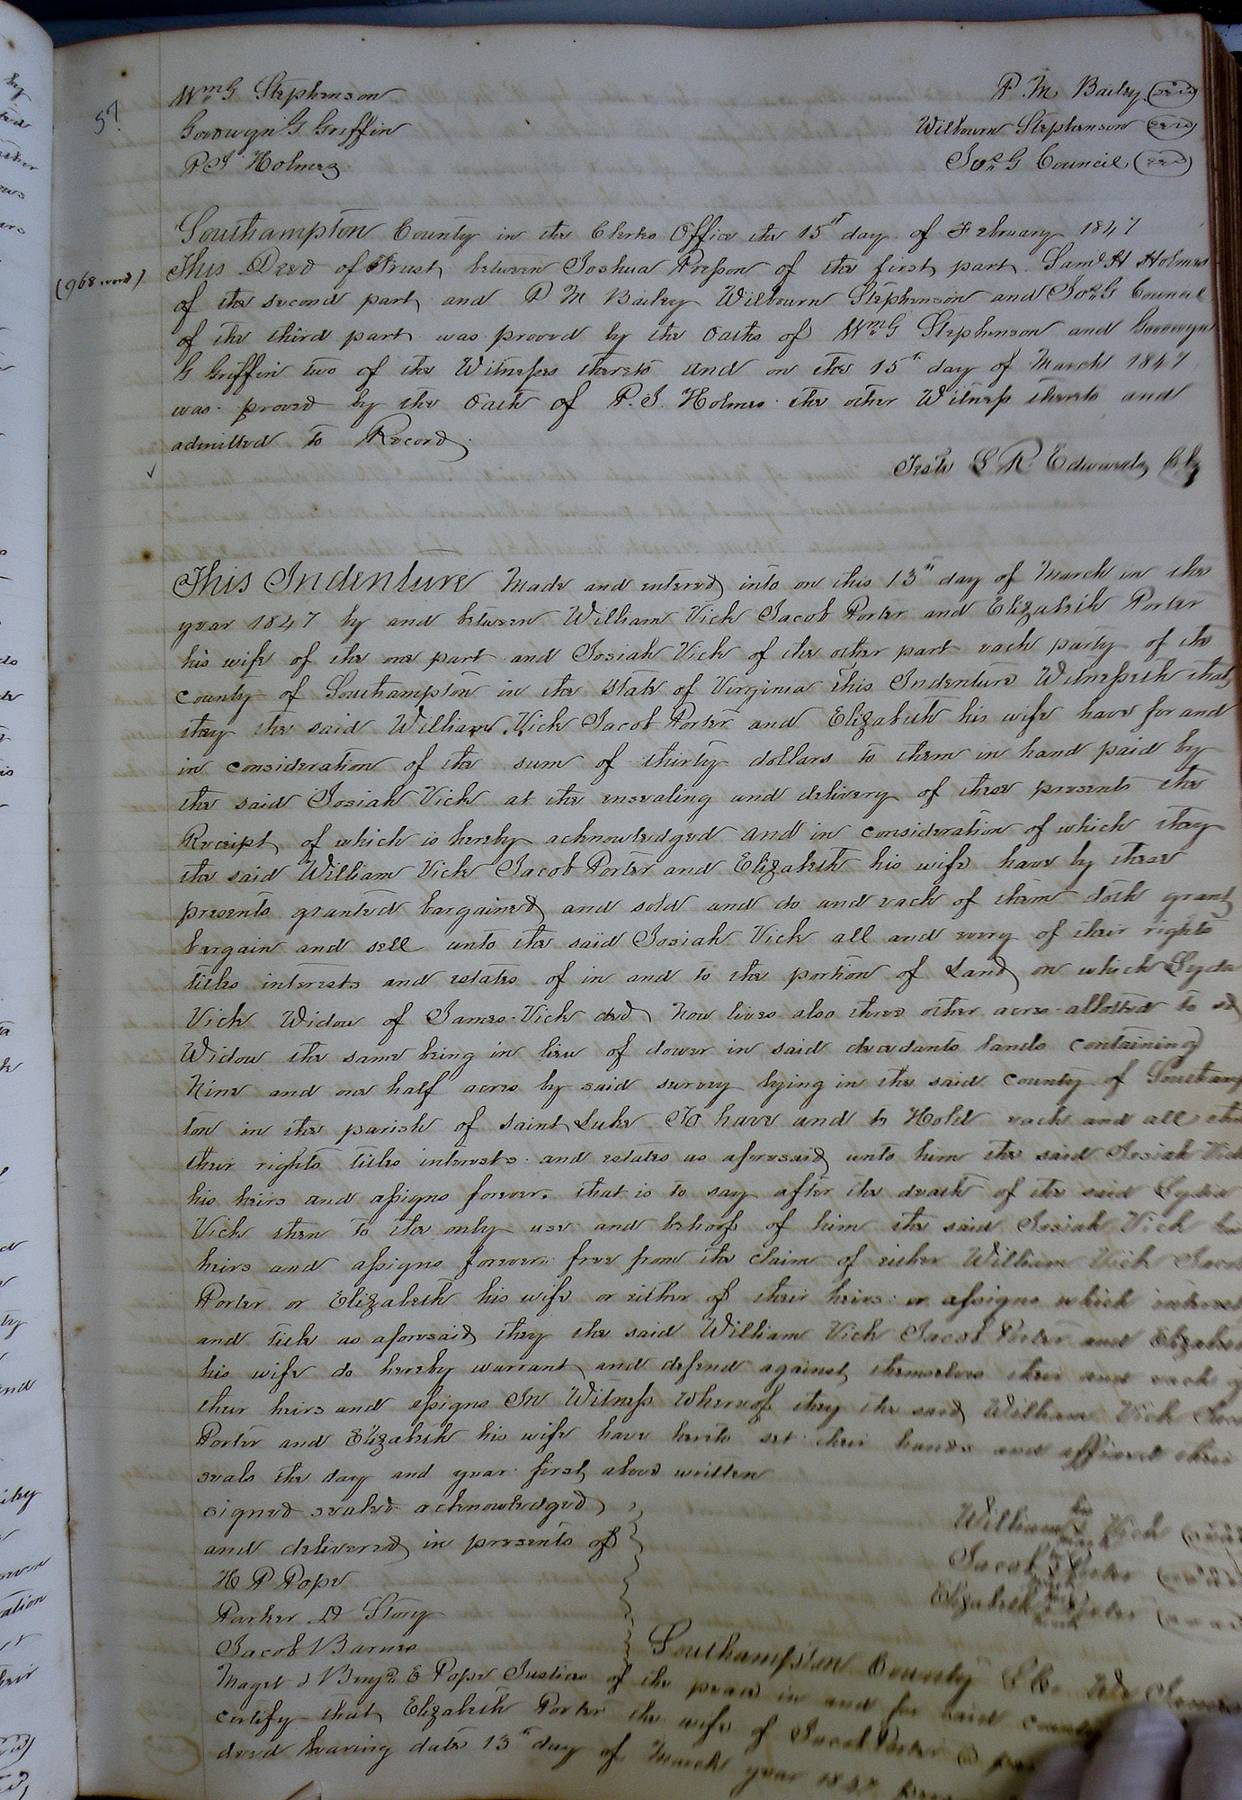 57
WmG Stephenson P M Bailey (seal)
Goodwyn G Griffin Wilbourn Stephenson (seal)
P. J. Holmes Jos G Council (seal)
Southampton County in the Clerks Office the 15th day of February 1847
(968 word) This Deed of Trust between Joshua Presson of the first part Saml H Holmes
of the second part and P M Bailey Wilbourn Stephenson and Jos G Council
of the third part was proved by the oaths of WmG Stephenson and Goodwyn
G Griffin two of the Witnesses thereto and on the 15th day of March 1847
was proved by the oath of P. J. Holmes the other Witness thereto and
admitted to Record
Teste L R Edwards Clk
This Indenture Made and entered into on this 13th day of March in the
year 1847 by and between William Vick Jacob Porter and Elizabeth Porter
his wife of the one part and Josiah Vick of the other part each party of the
County of Southampton in the State of Virginia this Indenture Witnesseth that
they the said William Vick Jacob Porter and Elizabeth his wife have for and
in consideration of the sum of thirty dollars to them in hand paid by
the said Josiah Vick at the ensealing and delivery of these presents the
Receipt of which is hereby acknowledged and in consideration of which they
the said William Vick Jacob Porter and Elizabeth his wife have by these
presents granted bargained and sold and do and each of them doth grant
bargain and sell unto the said Josiah Vick all and every of their rights
titles interests and estates of in and to the portion of Land on which Lydia
Vick Widow of James Vick decd now lives also three other acres allotted to sd
Widow the same being in lieu of dower in said decedants lands containing
Nine and one half acres by said survey lying in the said County of Southamp
ton in the parish of Saint Luke To have and to Hold each and all the
their rights titles interests and estates as aforesaid unto him the said Josiah Vick
his heirs and assigns forever. that is to say after the death of the said Lydia
Vick then to the only use and behoof of him the said Josiah Vick his
heirs and assigns forever free from the claim of either William Vick Jacob
Porter or Elizabeth his wife or either of their heirs or assigns which interest
and title as aforesaid they the said William Vick Jacob Porter and Elizabeth
his wife do hereby warrant and defend against themselves their and each of
their heirs and assigns In Witness whereof they the said William Vick Jacob
Porter and Elizabeth his wife have hereto set their hands and affixed their
seals the day and year first above written
signed sealed acknowledged
and delivered in presents of William his mark Vick (seal)
H P Pope Jacob his mark Porter (seal)
Parker D Story Elizabeth her mark Porter (seal)
Jacob Barnes
Southampton County
Maget & Benjn E Pope Justices of the peace in and for said County
certify that Elizabeth Porter the wife of Jacob Porter
deed bearing date 13th day of March year 1847